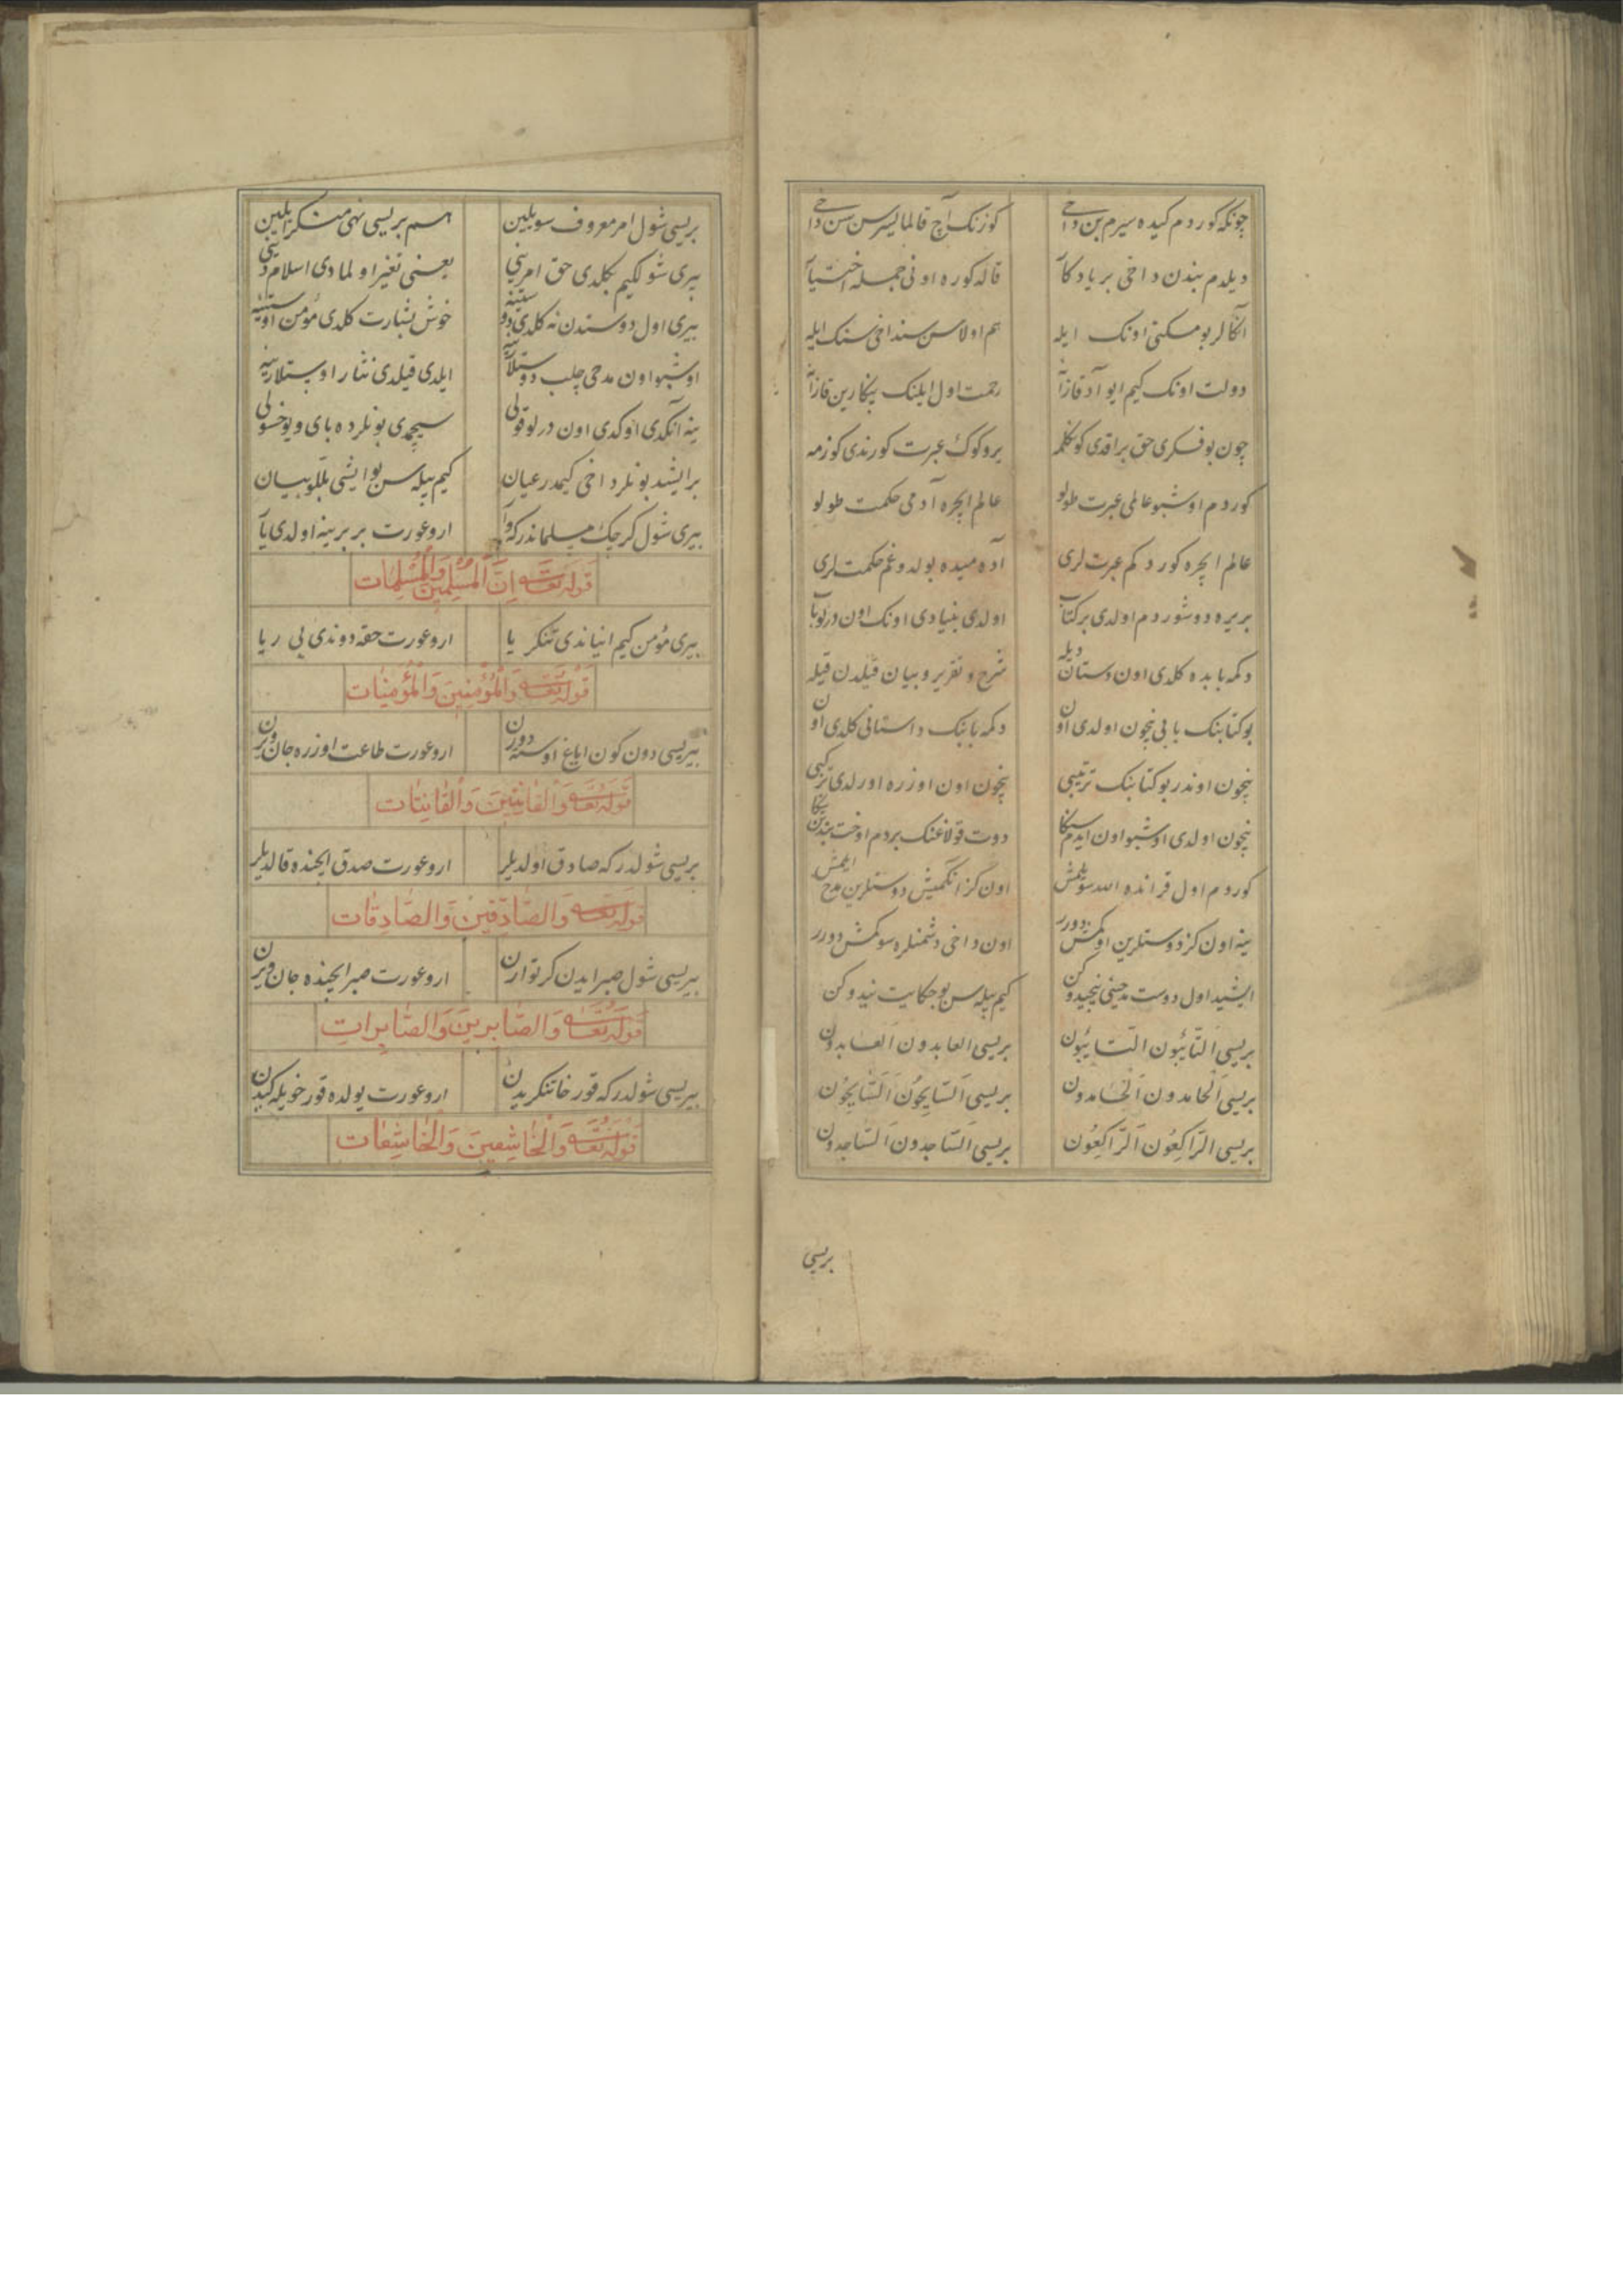 چونکه کوردم کیده سیرم بن داخی کوزنک آچ قالمایسرسن سن داخی
دیلدم بندن داخی بر یادکار قاله کوره اونی جمله اختیار
آکالر بو مسکنی اونک ایله هم اولاسن سنداخی سنک ایله
دولت اونک کیم ایو آد قازانه رحمت اول ایلنک ینکارین قازانه
چون بو فکری حق براقدی کوکلمه یر و کوک عبرت کورندی کوزمه
کوردم اوشبو عالمی عبرت طولو عالم ایچره آدمی حکمت طولو
عالم ایچره کوردکم عبرت لری آدمیده بولدوغم حکمت لری
بر یره دوشوردم اولدی بر کتاب اولدی بنیادی اونک اون درلو باب
دکمه بابده کلدی اون دستان دیله شرح و تقریر و بیان قیلدن قیله
بو کتابنک بابی نچون اولدی اون دکمه بابنک داستانی کلدی اون
نچون اوندر بو کتابنک ترتیبی نچون اون اوزره اورلدی ترکیبی
نچون اولدی اوشبو اون ایدم سکا دوت قولاغنک بردم اوخت بندن یکا
کوردم اول قرانده الله سویلمش اون کز انکمیش دوستلرین مدح ایلمش
ینه اون کز دوستلرین اوکمش دورر اون داخی دشمنلره سوکمش دورر
ایشید اول دوست مدحینی نیجیدوکن کیم بیله سن بو حکایت نیدوکن
بریسی التّائبون التائبون بریسی العابدون العابدون
بریسی الحامدون الحامدون بریسی السّایحون السّایحون
بریسی الرّاکعون الرّاکعون بریسی السّاجدون السّاجدون
بریسی
بریسی شول امر معروف سویلین هم بریسی نهی منکر ایلین
بیری شول کیم بکلدی حق امرینی یعنی تغیر اولمادی اسلام دینی
بیری اول دوستدن نه کلدی دوستنه خوش بشارت کلدی مؤمن اوستنه
اوشبو اون مدحی چلب دوستلارینه ایلدی قیلدی نثار اوستلارینه
ینه آنکدی اوکدی اون درلو قولی سیچدی بونلرده بای و یوخسولی
بر ایشید بونلر داخی کیمدر عیان کیم بیله سن بو ایشی بللو بیان
بیری شول کرجک مسلماندر که وار ار و عورت بر برینه اولدی یار
قوله تعالی اِنَّ الْمُسْلِمِینَ وَالْمُسْلِمَات
بیری مؤمن کیم انیاندی تنکر یا ار و عورت حقه دوندی بی ریا
قوله تعالی وَالْمُؤْمِنِینَ وَالْمُؤْمِنَات
بیریسی دون کون ایاغ اوسته دورن ار و عورت طاعت اوزره جان ویرن
قوله تعالی وَالْقَانِتِینَ وَالْقَانِتَات
بریسی شولدر که صادق اولدیلر ار و عورت صدق ایچنده قالدیلر
قوله تعالی وَالصَّادِقِینَ وَالصَّادِقَات
بیریسی شول صبر ایدن کرتو ارن ار و عورت صبر ایچنده جان ویرن
قوله تعالی وَالصَّابِرِینَ وَالصَّابِرَات
بیریسی شولدر که قورخا تنکریدن ار و عورت یولده قورخویله کیدن
قوله تعالی وَالْخَاشِعِینَ وَالْخَاشِعَات